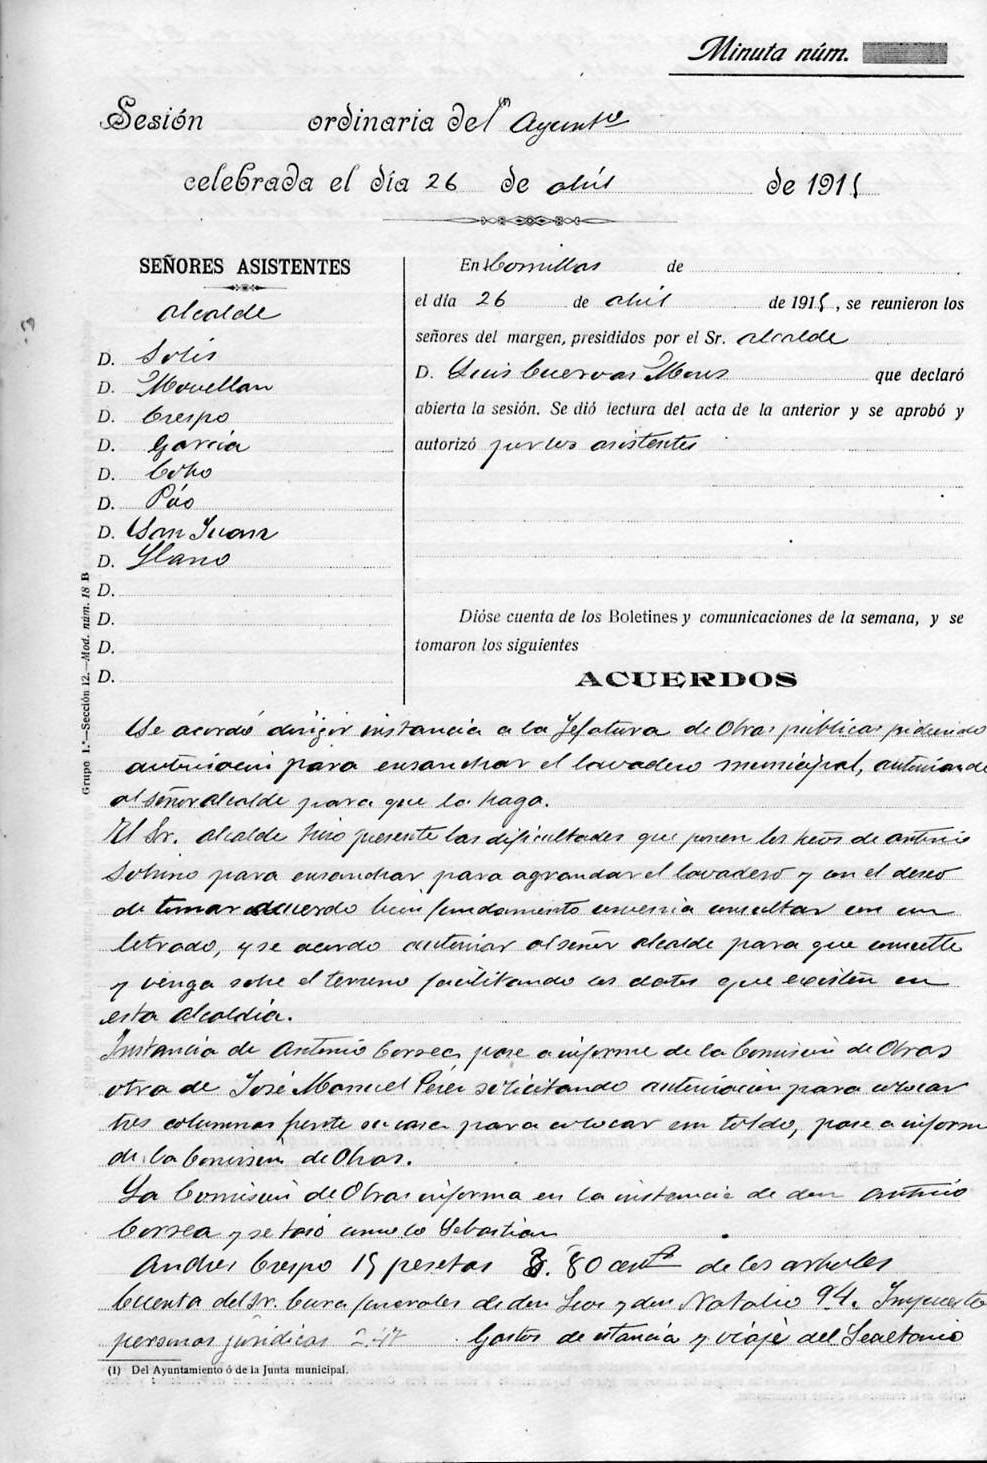 Minuta núm.
Sesión ordinaria del (1) Ayuntto
celebrada el día 26 de abril de 1915
SEÑORES ASISTENTES
Alcalde
D. Solis
D. Movellan
D. Crespo
D. Garcia
D. Coho
D. Póo
D. San Juan
D. Llano
D.
D.
D.
D.
En Comillas de
el día 26 de abril de 1915, se reunieron los
señores del margen, presididos por el Sr. alcalde
D. Luis Cuevas Mons que declaró
abierta la sesión. Se dió lectura del acta de la anterior y se aprobó y
autorizó por los asistentes
Dióse cuenta de los Boletines y comunicaciones de la semana, y se
tomaron los siguientes
ACUERDOS
Se acordó dirigir instancia a la Jefatura de Obras públicas pidiendo
autorizacion para ensanchar el lavadero municipal, autorizando
al señor alcalde para que lo haga.
El Sr. alcalde hizo presente las dificultades que ponen los hros de Antonio
Sobrino para ensanchar, para agrandar el lavadero y con el deseo
de tomar acuerdo bien fundamento convenia consultar con un
letrado, y se acordo autorizar al señor alcalde para que consulte
y venga sobre el terreno facilitando los datos que existen en
esta Alcaldia.
Instancia de Antonio Correa pase a informe de la Comision de Obras
otra de José Manuel Perez solicitando autorizacion para colocar
tres columnas frente su casa para colocar un toldo, pase a informe
de la Comision de Obras.
La Comision de Obras informa en la instancia de don Antonio
Correa y se tasó como lo Sebastian
Andres Crespo 15 pesetas 80 cents de los arboles
Cuenta del Sr. Cura funerales de don y don Natalio 94. Impuesto
personas jurídicas 2.47 Gastos de estancia y viaje del Secretario
(1) Del Ayuntamiento ó de la Junta municipal.
Grupo 1.º—Sección 12.—Mod. núm. 18 B